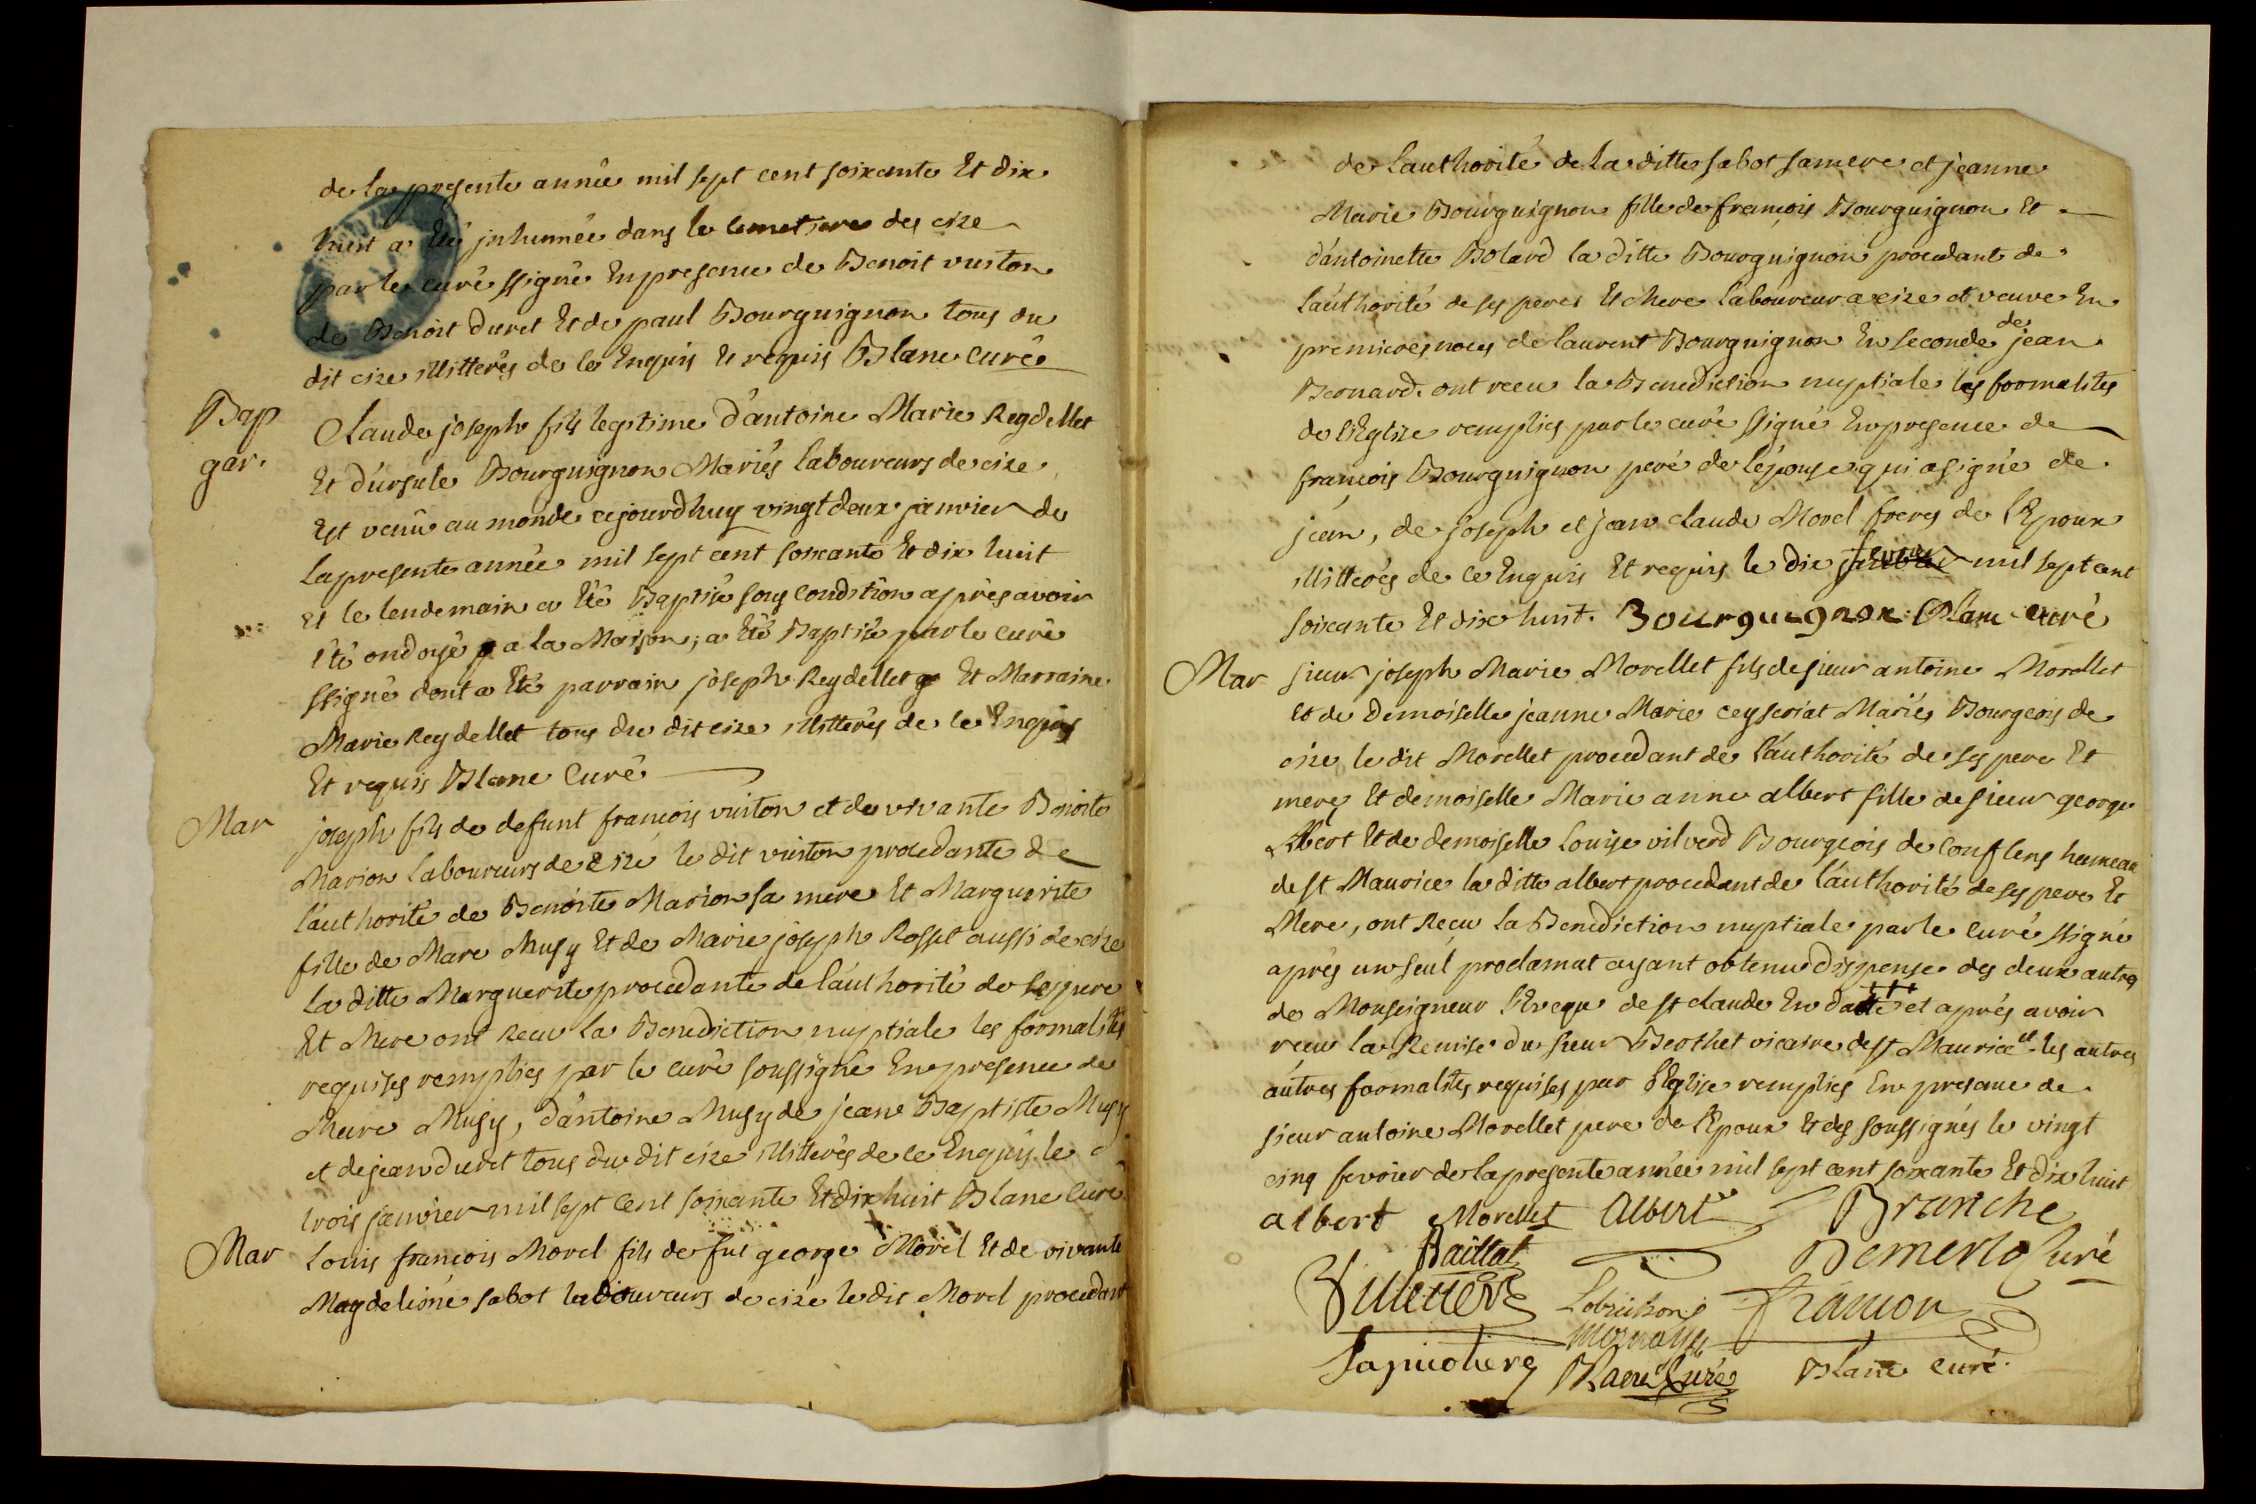 de la presente année mil sept cent soixante Et dix
huit a Eté jnhumée dans le cimetiere de cize
par le curé ssigné En presence de Benoit vuiton
de Benoit duret Et de paul Bourguignon tous du
dit cize illitterés de ce Enquis Et requis Blanc curé
Bap
gar.
Claude joseph fils legitime d'antoine Marie Reydellet
Et d'ursule Bourguignon Mariés laboureurs de cize
Est venu au monde cejourdhuy vingt deux janvier de
la presente année mil sept cent soixante Et dix huit
et le lendemain a Eté Baptisé sous condition après avoir
été ondoyé a la Maison, a Eté Baptisé par le curé
ssigné dont a Eté parrain joseph Reydellet Et Marraine
Marie Reydellet tous du dit cize illitterés de ce Enquis
Et requis Blanc Curé
Mar
joseph fils de defunt françois vuiton et de vivante Benoite
Marion laboureurs de cize le dit vuiton procedante de
l'authorité de Benoite Marion sa mere Et Marguerite
fille de Marc Musy Et de Marie joseph Rosset aussi de cize
la ditte Marguerite procedante de l'authorité de ses pere
Et Mere ont Receu la Benediction nuptiale les formalités
requises remplies par le curé soussigné En presence de
Marc Musy, d'antoine Musy de jean Baptiste Musy
et de jean duret tous du dit cize illitterés de ce Enquis le
trois janvier mil sept cent soixante Et dix huit Blanc Curé
Mar
Louis françois Morel fils de fut george Morel Et de vivante
Magdeleine sabot laboureurs de cize le dit Morel procedant
de l'authorité de la ditte sabot sa mere et jeanne
Marie Bourguignon fille de françois Bourguignon Et
d'antoinette Bolard la ditte Bourguignon procedant de
l'authorité de ses peres Et Mere laboureur a cize et veuve En
premieres noces de laurent Bourguignon En seconde de jean
Beonard. ont receu la Benediction nuptiale les formalités
de l'Eglise remplies par le curé ssigné En presence de
françois Bourguignon peré de l'épouse qui a signé de
jean, de joseph et jean claude Morel freres de l'Epoux
illitterés de ce Enquis Et requis le dix fevrier mil sept cent
soixante Et dix huit. Bourguignon Blanc curé
Mar
sieur joseph Marie Morellet fils de sieur antoine Morellet
Et de Demoiselle jeanne Marie ceyseriat Mariés Bourgeois de
cize le dit Morellet procedant de l'authorité de ses pere Et
mere Et demoiselle Marie anne albert fille de sieur george
Albert Et de demoiselle Louise vilverd Bourgeois de Conflens hameau
de st Maurice la ditte albert procedant de l'authorité de ses pere Et
Mere, ont Reçu la Benediction nuptiale par le curé ssigné
après un seul proclamat ayant obtenu dispense des deux autres
de Monseigneur l'Eveque de st claude En datte et aprés avoir
receu la Remise du sieur Berthet vicaire de st Maurice et les autres
autres formalités requises par l'Eglise remplies En presence de
sieur antoine Morellet pere de l'Epoux Et des soussignés le vingt
cinq fevrier de la presente année mil sept cent soixante Et dix huit
albert Morellet Albert Branche
Baillat Demerlo Curé
Lobrichon
Blanc curé